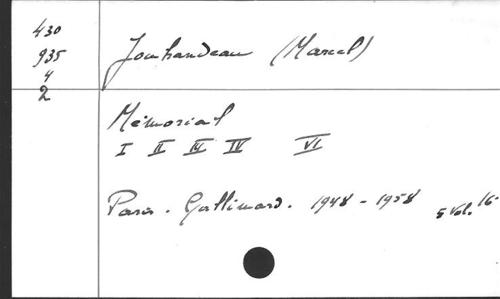 430
935
4
2
Jouhandeau (Marcel)
Mémorial
I II III IV VI
Paris. Gallimard. 1948-1958 5 vol. 16°